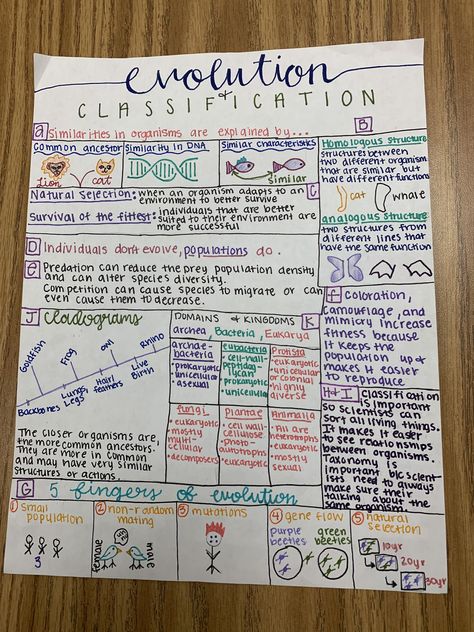 evolution
+
CLASSIFICATION
a Similarities in organisms are explained by...
Common ancestor
Lion
cat
Similarity in DNA
Similar characteristics
similar
Natural selection: when an organism adapts to an
environment to better survive
Survival of the fittest: individuals that are better
suited to their environment are
more successful
C
B
Homologous structure
structures between
two different organism
that are similar but
have different functions
cat
whale
analogous structure
two structures from
different lines that
have the same function
D Individuals don't evolve, populations do.
e Predation can reduce the prey population density
and can alter species diversity.
Competition can cause species to migrate or can
even cause them to decrease.
f Coloration,
camouflage, and
mimicry increase
fitness because
it keeps the
population up &
makes it easier
to reproduce
J Cladograms
Goldfish
Frog
owl
Rhino
Backbones
Lungs
Legs
Hair/
feathers
Live
Birth
The closer organisms are,
the more common ancestors.
They are more in common
and may have very similar
structures or actions.
DOMAINS & KINGDOMS K
archea, Bacteria, Eukarya
archae-
bacteria
• prokaryotic
• unicellular
• asexual
eubacteria
• cell-wall-
peptidog-
lycan
• prokaryotic
• unicellular
Protista
• eukaryotic
• unicellular
or colonial
• highly
diverse
fungi
• eukaryotic
• mostly
multi-
cellular
• decomposers
plantae
• cell wall-
cellulose
• photo-
autotrophs
• eukaryotic
Animalia
• all are
heterotrophs
• eukaryotic
• mostly
sexual
H+I Classification
is important
so scientists can
sort all living things.
It makes it easier
to see relationships
between organisms.
Taxonomy is
important b/c scient-
ists need to always
make sure their
talking about the
same organism.
G 5 fingers of evolution
1 small
population
3
2 non-random
mating
female
male
3 mutations
4 gene flow
purple
beetles
green
beetles
5 natural
selection
10yr
20yr
30yr